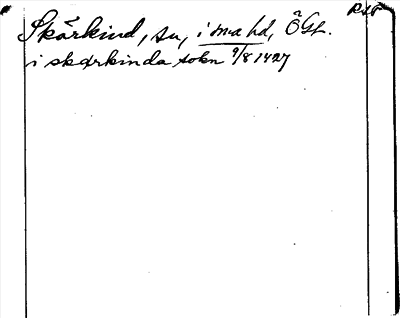 Skärkind, sn, i m-a hd, ÖGL.
i skærkinda sokn 9/8 1427